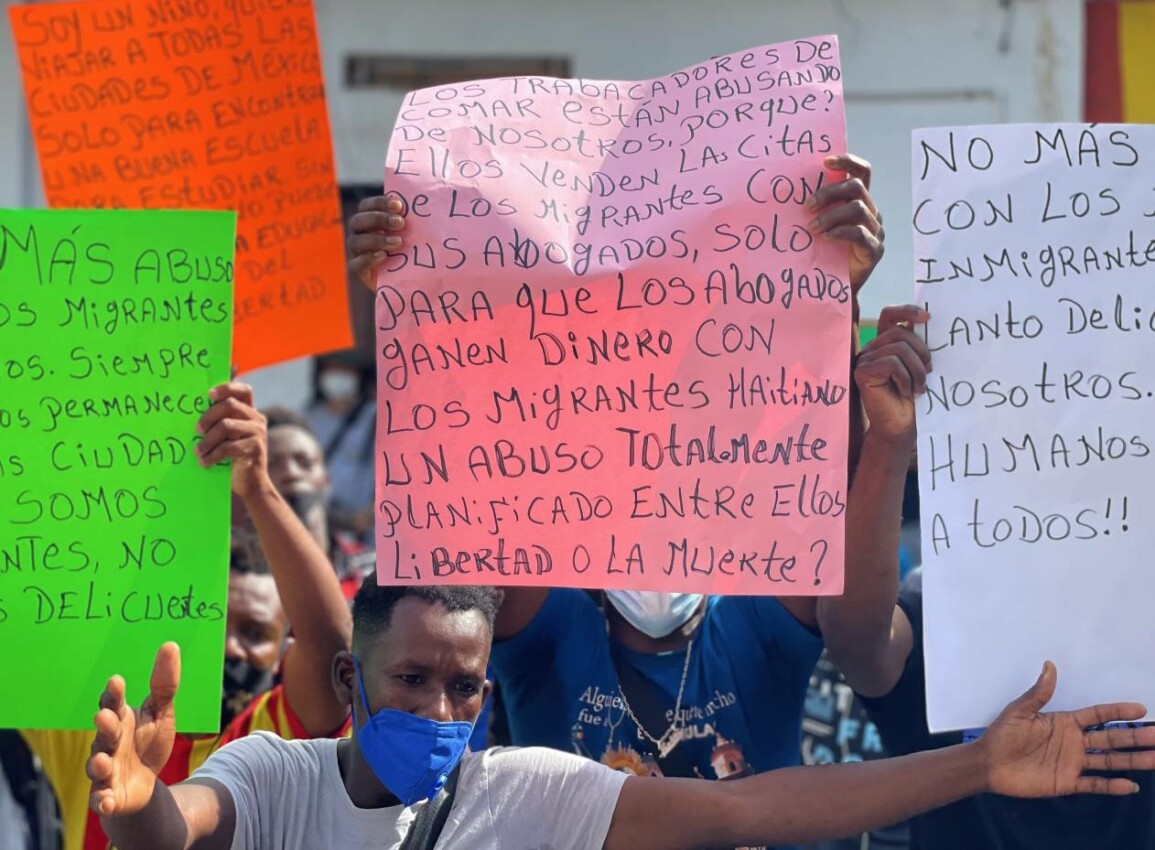 SOY UN NIÑO, QUIERO
VIAJAR A TODAS LAS
CIUDADES DE MÉXICO
SOLO PARA ENCONTRA
UNA BUENA ESCUELA
PARA ESTUDIAR SIN
EDUCA
DEL
LIBERTAD
MÁS ABUSO
OS MIGRANTES
OS. SIEMPRE
OS PERMANECE
S CIUDADE
SOMOS
NTES, NO
S DELICUEtes
LOS TRABACADORES DE
COMAR ESTÁN ABUSANDO
DE NOSOTROS, PORQUE?
ELLOS VENDEN LAS CITAS
DE LOS MIGRANTES CON
SUS ABOGADOS, SOLO
PARA QUE LOS ABOGADOS
GANEN DINERO CON
LOS MIGRANTES HAITIANO
UN ABUSO TOTALMENTE
PLANIFICADO ENTRE ELLOS
LIBERTAD O LA MUERTE?
NO MÁS
CON LOS
INMIGRANTE
TANTO DELIC
NOSOTROS.
HUMANOS
A TODOS!!
Alguien
fue a